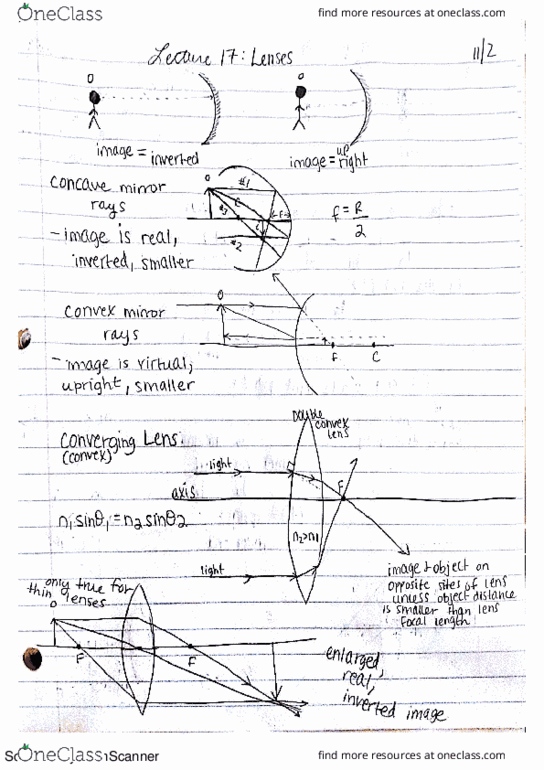 OneClass
find more resources at oneclass.com
Lecture 17: Lenses
11/2
O
O
image = inverted
image = upright
concave mirror
rays
- image is real,
inverted, smaller
O
#1
#3
#2
C
F
f = R
2
convex mirror
rays
- image is virtual,
upright, smaller
O
F
C
Converging Lens
(convex)
Double
convex
lens
light
axis
F
n₁ sinθ₁ = n₂ sinθ₂
n₂>n₁
light
image + object on
opposite sites of lens
unless object distance
is smaller than lens
focal length
only true for
thin lenses
O
F
F
enlarged,
real,
inverted image
OneClass
Scanner
find more resources at oneclass.com